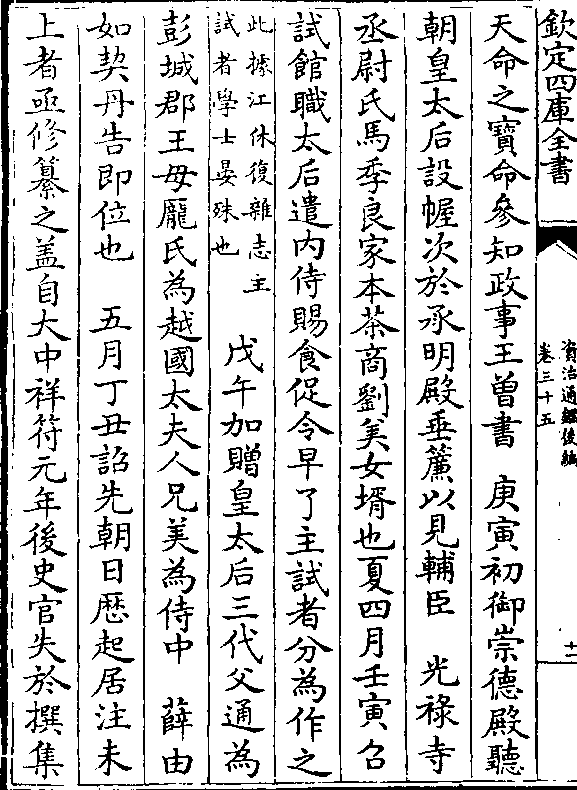 欽定四庫全書
資治通鑑後編
卷三十五
十一
天命之寶命參知政事王曾書　庚寅初御崇德殿聽
朝皇太后設幄次於承明殿垂簾以見輔臣　光祿寺
丞尉氏馬季良家本茶商劉美女壻也夏四月壬寅召
試館職太后遣内侍賜食促令早了主試者分為作之
此據江休復雜志主
試者學士晏殊也
戊午加贈皇太后三代父通為
彭城郡王母龐氏為越國太夫人兄美為侍中　薛由
如契丹告即位也　五月丁丑詔先朝日歷起居注未
上者亟修纂之盖自大中祥符元年後史官失於撰集